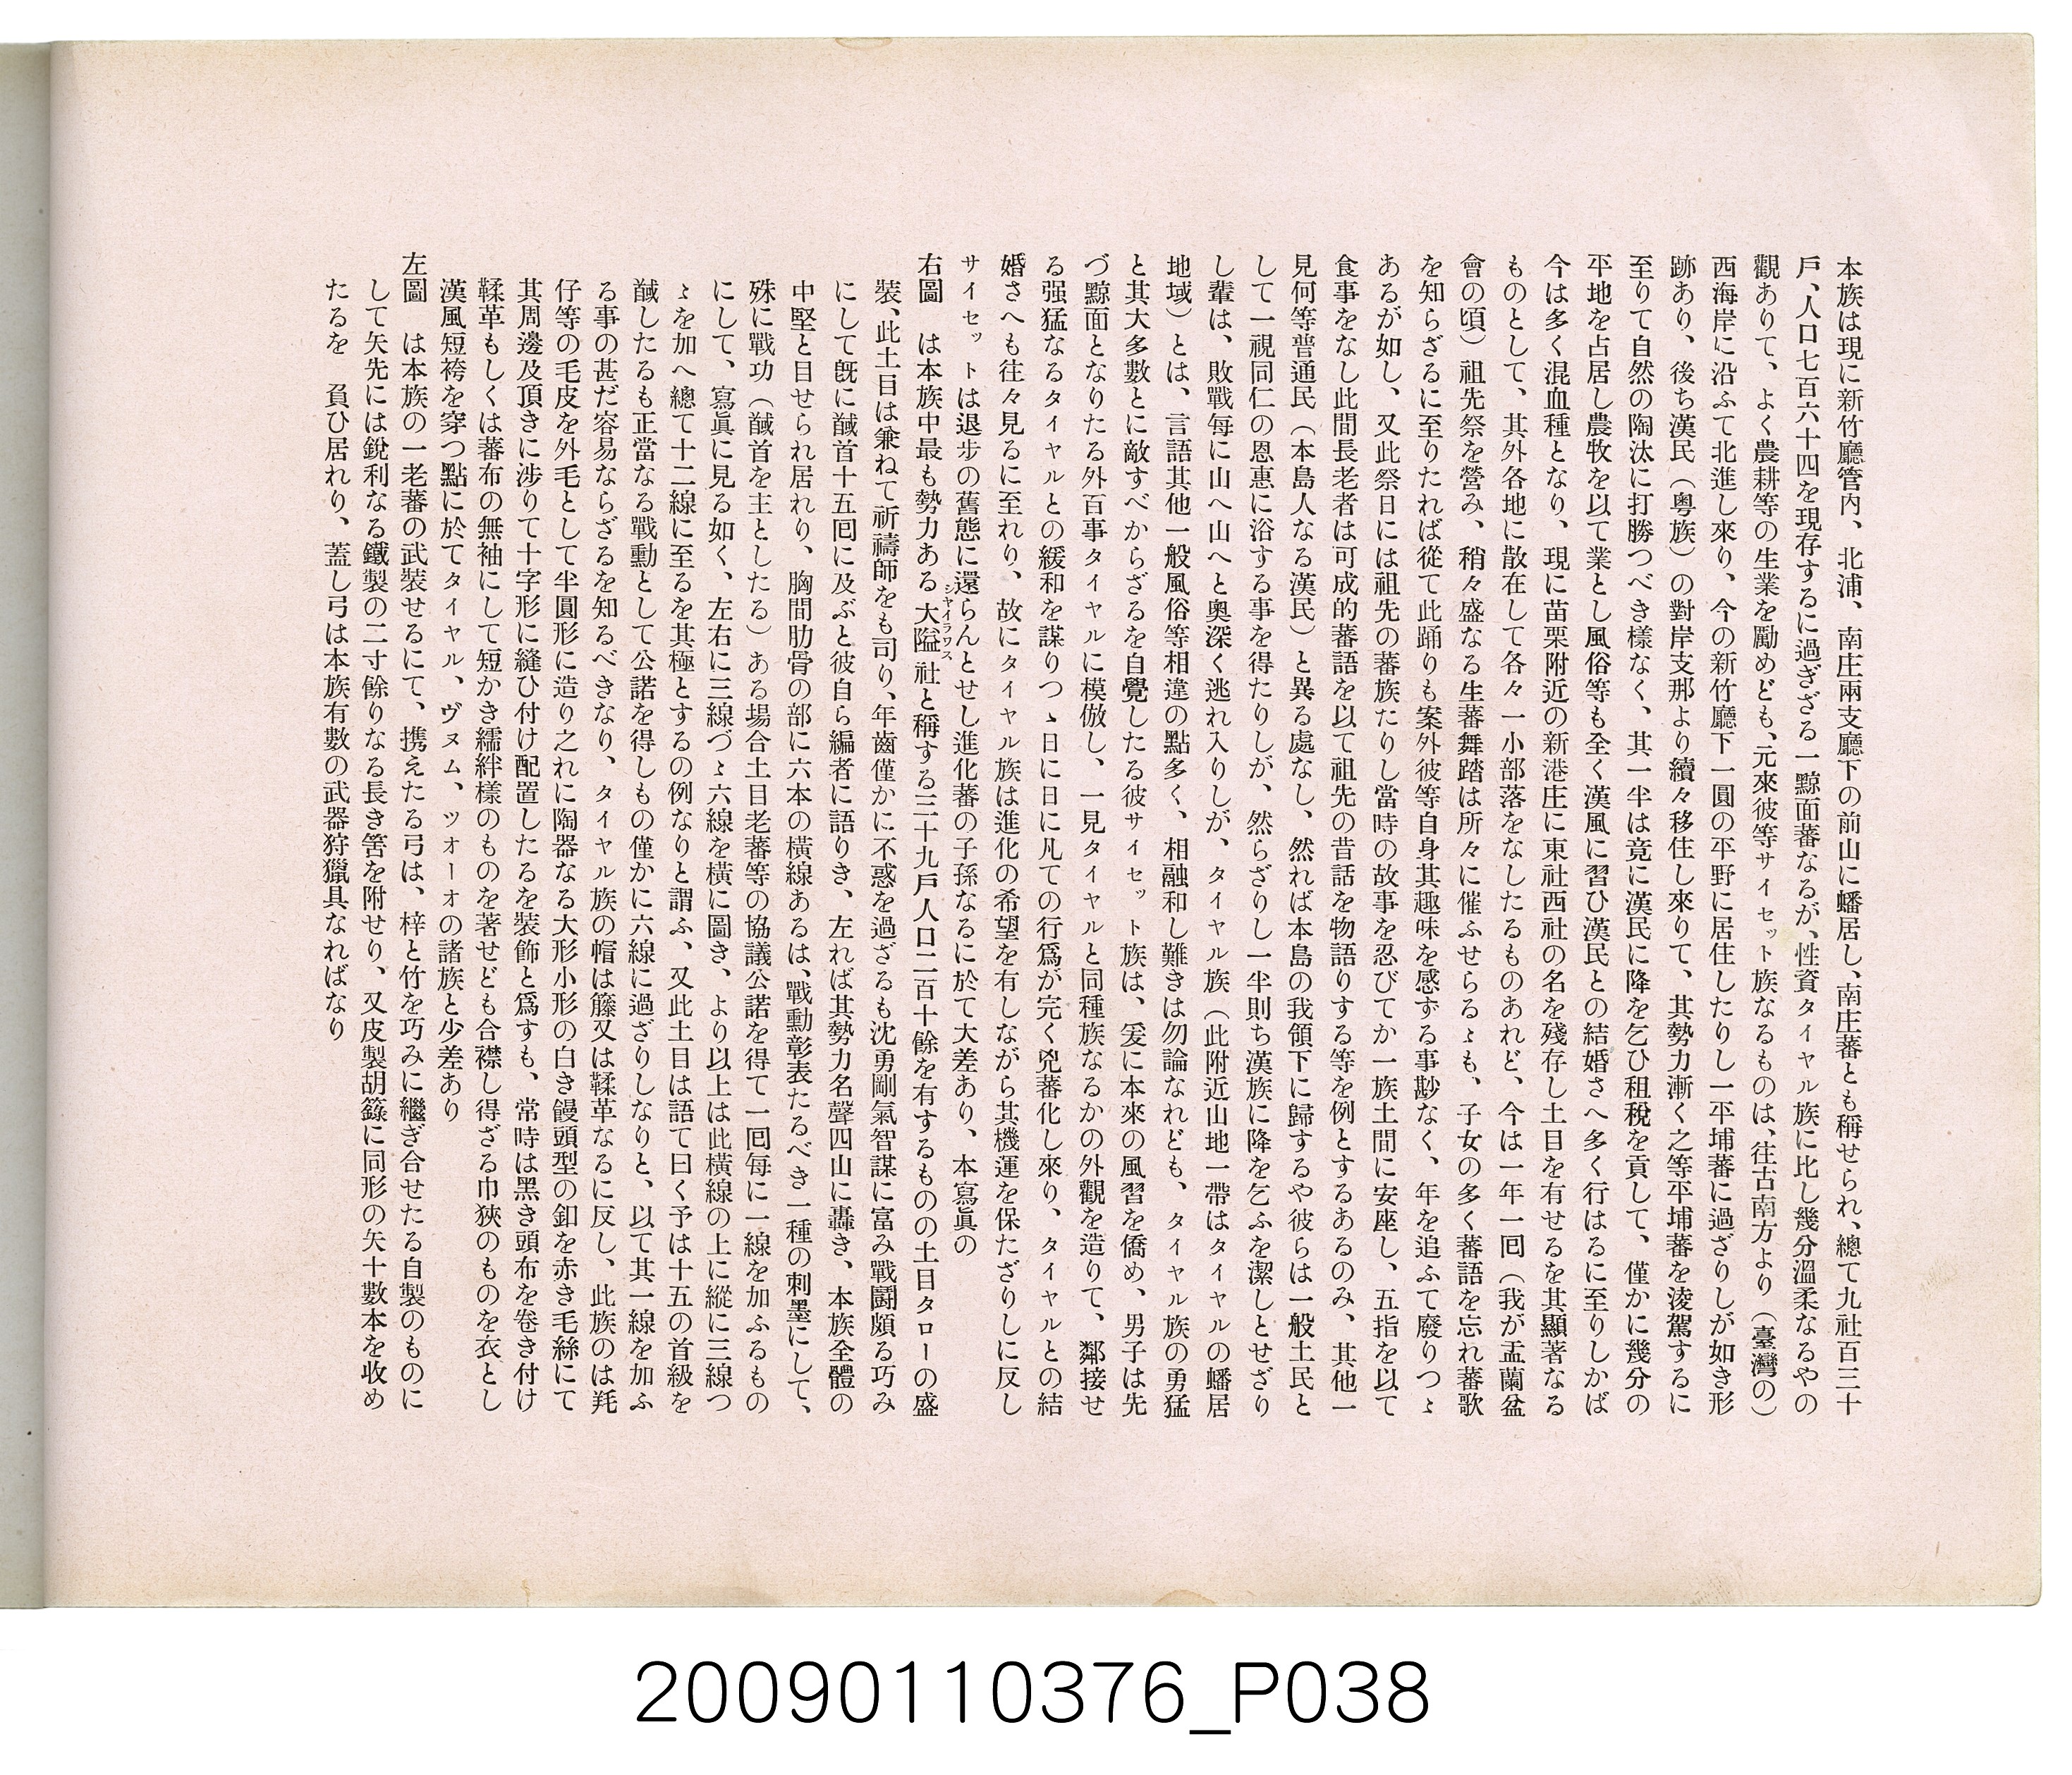 本族は現に新竹廳管内、北浦、南庄兩支廳下の前山に蟠居し、南庄蕃とも稱せられ、總て九社百三十
戶、人口七百六十四を現存するに過ぎざる一黥面蕃なるが、性資タイヤル族に比し幾分溫柔なるやの
觀ありて、よく農耕等の生業を勵めども、元來彼等サイセット族なるものは、往古南方より（臺灣の）
西海岸に沿ふて北進し來り、今の新竹廳下一圓の平野に居住したりし一平埔蕃に過ざりしが如き形
跡あり、後ち漢民（粵族）の對岸支那より續々移住し來りて、其勢力漸く之等平埔蕃を淩駕するに
至りて自然の陶汰に打勝つべき樣なく、其一半は竟に漢民に降を乞ひ租稅を貢して、僅かに幾分の
平地を占居し農牧を以て業とし風俗等も全く漢風に習ひ漢民との結婚さへ多く行はるに至りしかば
今は多く混血種となり、現に苗栗附近の新港庄に東社西社の名を殘存し土目を有せるを其顯著なる
ものとして、其外各地に散在して各々一小部落をなしたるものあれど、今は一年一囘（我が盂蘭盆
會の頃）祖先祭を營み、稍々盛なる生蕃舞踏は所々に催ふせらるゝも、子女の多く蕃語を忘れ蕃歌
を知らざるに至りたれば從て此踊りも案外彼等自身其趣味を感ずる事尠なく、年を追ふて廢りつゝ
あるが如し、又此祭日には祖先の蕃族たりし當時の故事を忍びてか一族土間に安座し、五指を以て
食事をなし此間長老者は可成的蕃語を以て祖先の昔話を物語りする等を例とするあるのみ、其他一
見何等普通民（本島人なる漢民）と異る處なし、然れば本島の我領下に歸するや彼らは一般土民と
して一視同仁の恩惠に浴する事を得たりしが、然らざりし一半則ち漢族に降を乞ふを潔しとせざり
し輩は、敗戰每に山へ山へと奧深く逃れ入りしが、タイヤル族（此附近山地一帶はタイヤルの蟠居
地域）とは、言語其他一般風俗等相違の點多く、相融和し難きは勿論なれども、タイヤル族の勇猛
と其大多數とに敵すべからざるを自覺したる彼サイセット族は、爰に本來の風習を僑め、男子は先
づ黥面となりたる外百事タイヤルに模倣し、一見タイヤルと同種族なるかの外觀を造りて、鄰接せ
る强猛なるタイヤルとの緩和を謀りつゝ日に日に凡ての行爲が完く兇蕃化し來り、タイヤルとの結
婚さへも往々見るに至れり、故にタイヤル族は進化の希望を有しながら其機運を保たざりしに反し
サイセットは退步の舊態に還らんとせし進化蕃の子孫なるに於て大差あり、本寫眞の
右圖　は本族中最も勢力ある大隘社と稱する三十九戶人口二百十餘を有するものの土目タローの盛
裝、此土目は兼ねて祈禱師をも司り、年齒僅かに不惑を過ざるも沈勇剛氣智謀に富み戰鬪頗る巧み
にして旣に馘首十五囘に及ぶと彼自ら編者に語りき、左れば其勢力名聲四山に轟き、本族全體の
中堅と目せられ居れり、胸間肋骨の部に六本の橫線あるは、戰勳彰表たるべき一種の刺墨にして、
殊に戰功（馘首を主としたる）ある場合土目老蕃等の協議公諾を得て一囘每に一線を加ふるもの
にして、寫眞に見る如く、左右に三線づゝ六線を橫に圖き、より以上は此橫線の上に縱に三線つ
ゝを加へ總て十二線に至るを其極とするの例なりと謂ふ、又此土目は語て曰く予は十五の首級を
馘したるも正當なる戰勳として公諾を得しもの僅かに六線に過ざりしなりと、以て其一線を加ふ
る事の甚だ容易ならざるを知るべきなり、タイヤル族の帽は籐又は鞣革なるに反し、此族のは羗
仔等の毛皮を外毛として半圓形に造り之れに陶器なる大形小形の白き饅頭型の釦を赤き毛絲にて
其周邊及頂きに涉りて十字形に縫ひ付け配置したるを裝飾と爲すも、常時は黑き頭布を卷き付け
鞣革もしくは蕃布の無袖にして短かき繻絆樣のものを著せども合襟し得ざる巾狹のものを衣とし
漢風短袴を穿つ點に於てタイヤル、ヴヌム、ツオーオの諸族と少差あり
左圖　は本族の一老蕃の武裝せるにて、携えたる弓は、梓と竹を巧みに繼ぎ合せたる自製のものに
して矢先には銳利なる鐵製の二寸餘りなる長き筈を附せり、又皮製胡籙に同形の矢十數本を收め
たるを　負ひ居れり、蓋し弓は本族有數の武器狩獵具なればなり
シヤイラワス
20090110376_P038